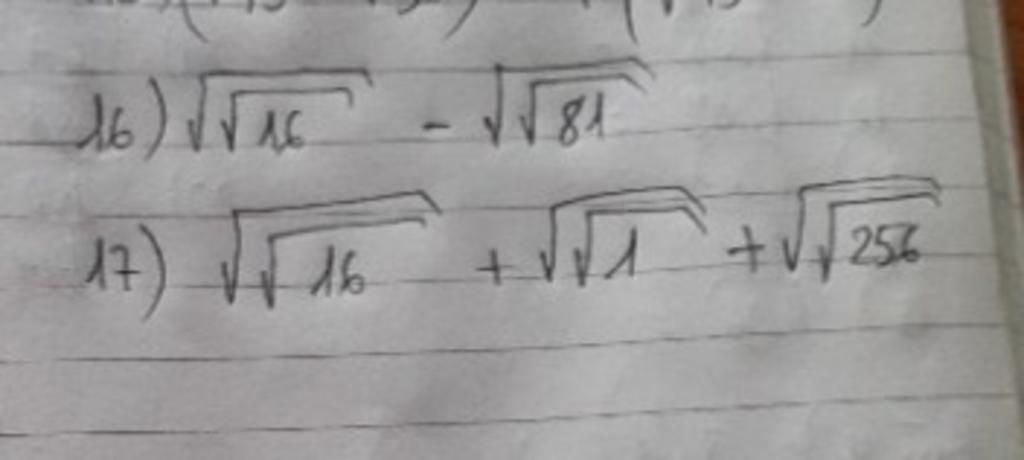 16) √√16 - √√81
17) √√16 + √√1 + √√256